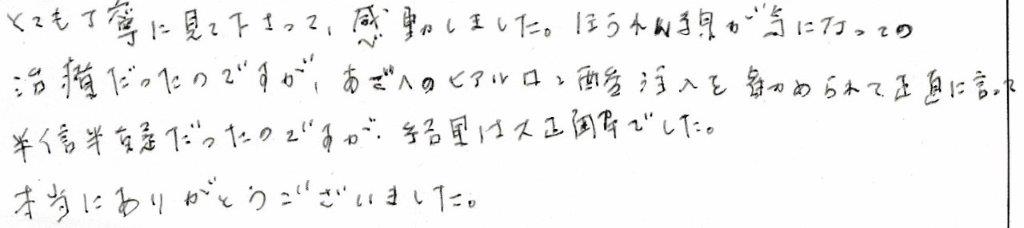 とても丁寧に見て下さって、感動しました。ほうれい線が気になっての
治療だったのですが、あごへのヒアルロン酸注入を勧められて正直に言って
半信半疑だったのですが、結果は大正解でした。
本当にありがとうございました。